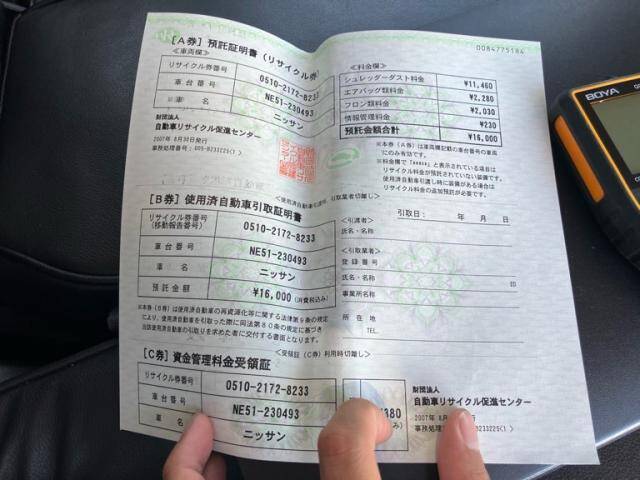 0084775184
[A券] 預託証明書 (リサイクル券)
≪車両欄≫
リサイクル券番号 0510-2172-8233
車台番号 NE51-230493
車 名 ニッサン
財団法人
自動車リサイクル促進センター
2007年 8月30日発行
≪料金欄≫
シュレッダーダスト料金 ¥11,460
エアバッグ類料金 ¥2,280
フロン類料金 ¥2,030
情報管理料金 ¥230
預託金額合計 ¥16,000
※本券(A券)は車両欄記載の車台番号の車両
にのみ有効です。
と表示されている場合は
リサイクル料金が預託されていない装備です。
使用済自動車引渡し時に装備がある場合は
リサイクル料金の追加預託が必要です。
[B券] 使用済自動車引取証明書
リサイクル券番号
(移動報告番号) 0510-2172-8233
車台番号 NE51-230493
車 名 ニッサン
預託金額 ¥16,000 (消費税込み)
※本券(B券)は使用済自動車の再資源化等に関する法律第9条の規定
により、使用済自動車を引取った際に同法第80条の規定に基づき
当該使用済自動車の引取りを求めた者に交付する書面となります。
引取日: 年 月 日
≪引渡者≫
氏名・名称
≪引取業者≫
登録番号
氏名・名称 印
事業所名称
所在地
TEL.
≪受領証(C券)利用時切離し≫
[C券] 資金管理料金受領証
リサイクル券番号 0510-2172-8233
車台番号 NE51-230493
車 名 ニッサン
380
財団法人
自動車リサイクル促進センター
2007年
BOYA